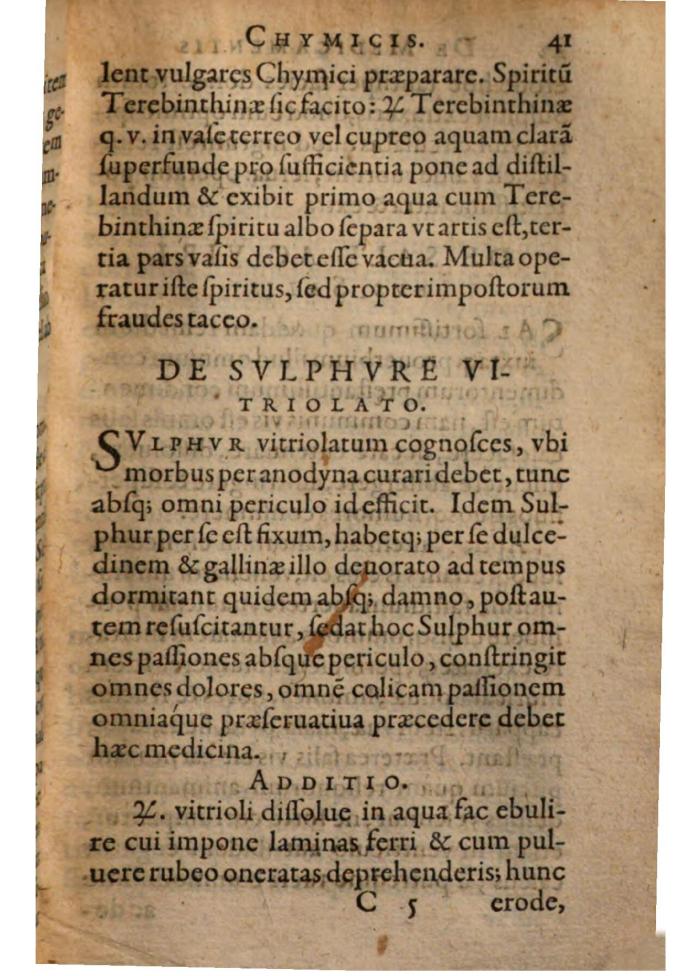 CHYMICIS. 41
lent vulgares Chymici præparare. Spiritū
Terebinthinæ ſic facito: ℞ Terebinthinæ
q. v. in vaſe terreo vel cupreo aquam clarā
ſuperfunde pro ſufficientia pone ad diſtil-
landum & exibit primo aqua cum Tere-
binthinæ ſpiritu albo ſepara vt artis eſt, ter-
tia pars vaſis debet eſſe vacua. Multa ope-
ratur iſte ſpiritus, ſed propter impoſtorum
fraudes taceo.
DE SVLPHVRE VI-
TRIOLATO.
SVLPHVR vitriolatum cognoſces, vbi
morbus per anodyna curari debet, tunc
abſq; omni periculo id efficit. Idem Sul-
phur per ſe eſt fixum, habetq; per ſe dulce-
dinem & gallinæ illo deuorato ad tempus
dormitant quidem abſq; damno, poſt au-
tem reſuſcitantur, ſedat hoc Sulphur om-
nes paſſiones abſque periculo, conſtringit
omnes dolores, omnē colicam paſſionem
omniaq́ue præſeruatiua præcedere debet
hæc medicina.
ADDITIO.
℞. vitrioli diſſolue in aqua fac ebuli-
re cui impone laminas ferri & cum pul-
uere rubeo oneratas deprehenderis; hunc
C 5 erode,